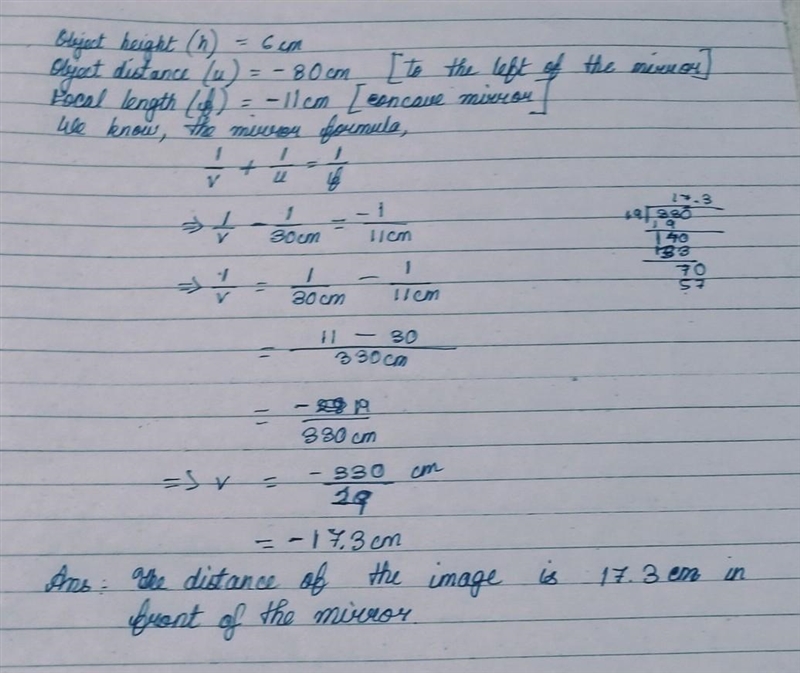 Object height (h) = 6 cm
Object distance (u) = -30 cm [To the left of the mirror]
Focal length (f) = -11 cm [concave mirror]
We know, the mirror formula,
1/v + 1/u = 1/f
⇒ 1/v - 1/30cm = -1/11cm
⇒ 1/v = 1/30cm - 1/11cm
= 11 - 30/330cm
= -19/330cm
⇒ v = -330/19 cm
= -17.3 cm
Ans: The distance of the image is 17.3 cm in
front of the mirror.
17.3
19 330
19
140
133
70
57